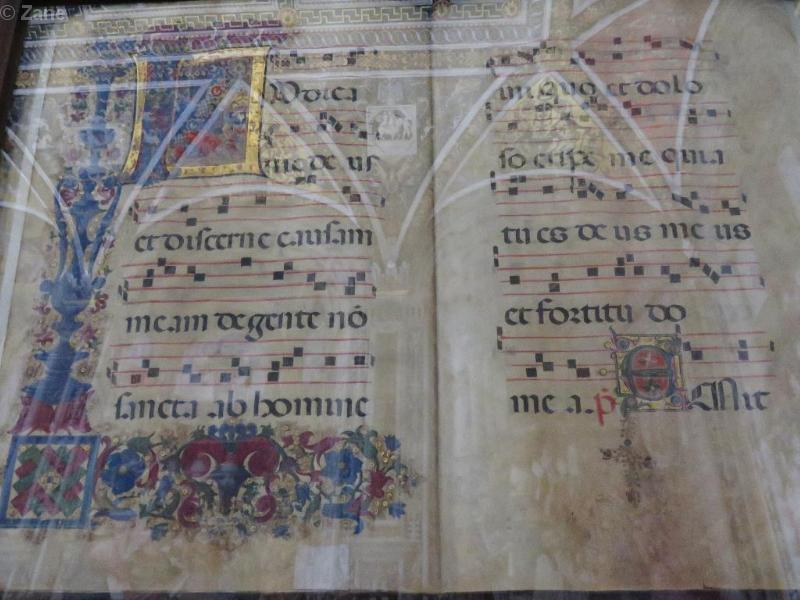 © Zane
IUdica
me de us
et discerne causam
me am de gente nō
sancta ab homine
ini quo et dolo
so eripe me quia
tu es de us me us
et fortitu do
me a. p̄ Emit